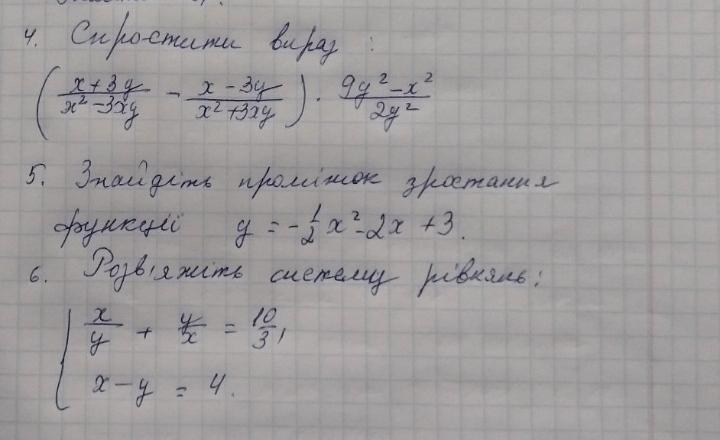 4. Спростити вираз:
(x+3y / x²-3xy - x-3y / x²+3xy) · 9y²-x² / 2y²
5. Знайдіть проміжок зростання
функції y = -1/2 x² - 2x + 3.
6. Розв'яжіть систему рівнянь:
x/y + y/x = 10/3,
x - y = 4.